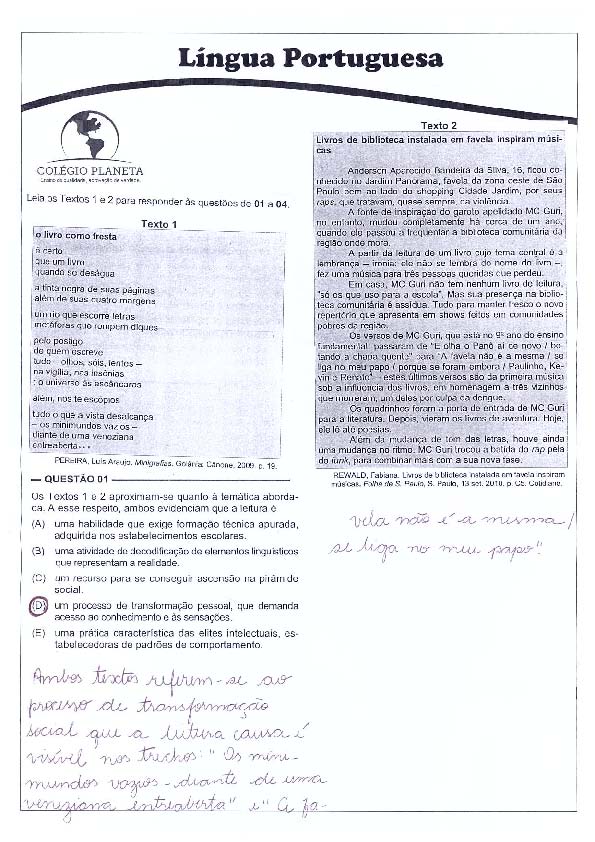 Língua Portuguesa
COLÉGIO PLANETA
Leia os Textos 1 e 2 para responder às questões de 01 a 04.
Texto 1
o livro como fresta
é certo
que um livro
quando se deságua
a tinta negra de suas páginas
além de suas quatro margens
um rio que escorre letras
metáforas que rompem diques
pelo postigo
de quem escreve
tudo – olhos, sóis, lentes –
na vigília, nas insônias
: o universo às escâncaras
além, nos telescópios
tudo o que a vista desalcança
– os minimundos vazios –
diante de uma veneziana
entreaberta...
PEREIRA, Luís Araujo. Minigrafias. Goiânia: Cânone, 2009. p. 19.
QUESTÃO 01
Os Textos 1 e 2 aproximam-se quanto à temática aborda-
da. A esse respeito, ambos evidenciam que a leitura é
(A) uma habilidade que exige formação técnica apurada,
adquirida nos estabelecimentos escolares.
(B) uma atividade de decodificação de elementos linguísticos
que representam a realidade.
(C) um recurso para se conseguir ascensão na pirâmide
social.
(D) um processo de transformação pessoal, que demanda
acesso ao conhecimento e às sensações.
(E) uma prática característica das elites intelectuais, es-
tabelecedoras de padrões de comportamento.
Ambos textos referem-se ao
processo de transformação
social que a leitura causa é
visível nos trechos: " Os mini-
mundos vazios - diante de uma
veneziana entreaberta" e " A fa-
Texto 2
Livros de biblioteca instalada em favela inspiram músi-
cas
Anderson Aparecido Bandeira da Silva, 16, ficou co-
nhecido no Jardim Panorama, favela da zona oeste de São
Paulo bem ao lado do shopping Cidade Jardim, por seus
raps, que tratavam, quase sempre, da violência.
A fonte de inspiração do garoto apelidado MC Guri,
no entanto, mudou completamente há cerca de um ano,
quando ele passou a frequentar a biblioteca comunitária da
região onde mora.
A partir da leitura de um livro cujo tema central é a
lembrança – ironia: ele não se lembra do nome do livro –,
fez uma música para três pessoas queridas que perdeu.
Em casa, MC Guri não tem nenhum livro de leitura,
"só os que uso para a escola". Mas sua presença na biblio-
teca comunitária é assídua. Tudo para manter fresco o novo
repertório que apresenta em shows feitos em comunidades
pobres da região.
Os versos de MC Guri, que está no 9º ano do ensino
fundamental, passaram de "E olha o Panô aí de novo / bo-
tando a chapa quente" para "A favela não é a mesma / se
liga no meu papo / porque se foram embora / Paulinho, Ke-
vin e Renato" – estes últimos versos são da primeira música
sob a influência dos livros, em homenagem a três vizinhos
que morreram, um deles por culpa da dengue.
Os quadrinhos foram a porta de entrada de MC Guri
para a literatura. Depois, vieram os livros de aventura. Hoje,
ele lê até poesias.
Além da mudança de tom das letras, houve ainda
uma mudança no ritmo. MC Guri trocou a batida do rap pela
do funk, para combinar mais com a sua nova fase.
REWALD, Fabiana. Livros de biblioteca instalada em favela inspiram
músicas. Folha de S. Paulo, S. Paulo, 13 set. 2010. p. C5. Cotidiano.
vela não é a mesma /
se liga no meu papo".